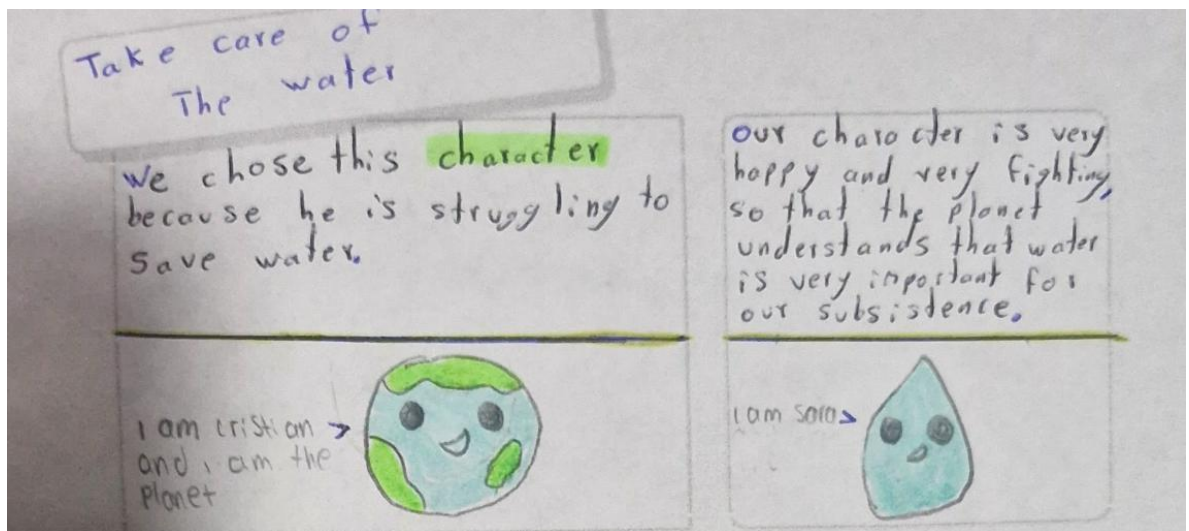 Take care of
The water
We chose this character
because he is struggling to
save water.
I am cristian
and i am the
planet
Our character is very
happy and very fighting,
so that the planet
understands that water
is very important for
our subsistence.
I am sara